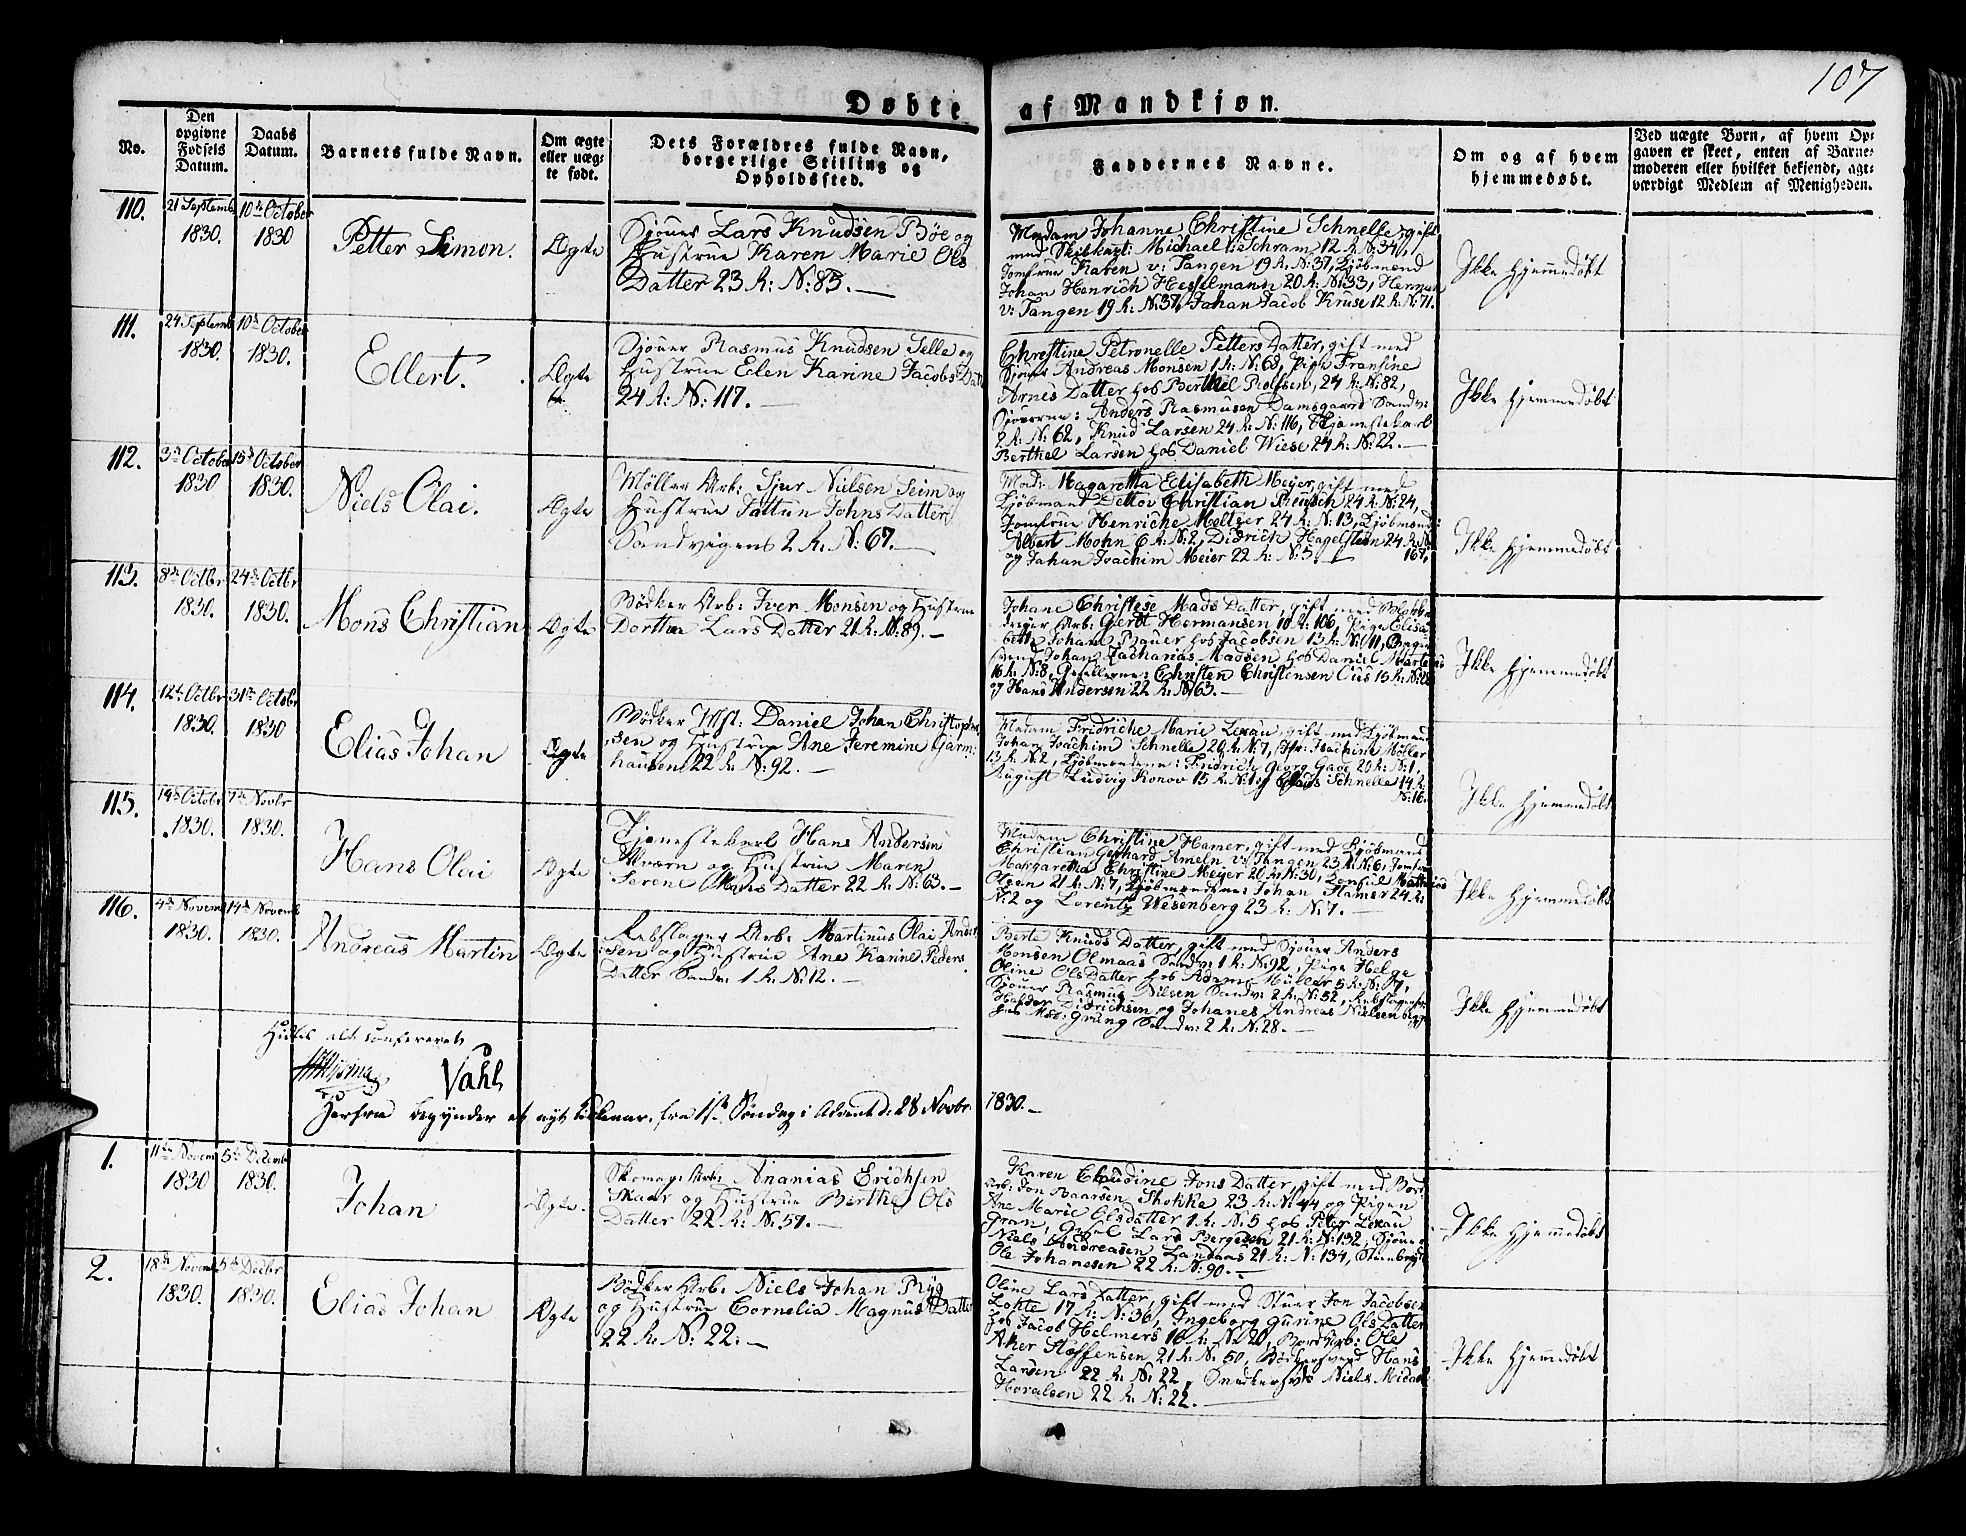 107
Døbte af Mandkjøn.
No.
Den opgivne Fødsels Datum.
Daabs Datum.
Barnets fulde Navn.
Om ægte eller uæg- te født.
Dets Forældres fulde Navn, borgerlige Stilling og Opholdssted.
Faddernes Navne.
Om og af hvem hjemmedøbt.
Ved uægte Børn, af hvem Op-
gaven er skeet, enten af Barne-
moderen eller hvilket bekjendt, agt-
værdigt Medlem af Menigheden.
110.
21 Septemb
1830.
10de October
1830
Petter Simon.
Ægte
Sjouer Lars Knudsen Bøe og
Hustrue Karen Marie Ols
Datter 23 R: N: 83.
Madam Johanne Christine Schnelle, gift
med Skibkapt: Michael Schram 12 R: N: 34,
Jomfrue Karen v: Tangen 19 R: N: 37, Kjøbmænd
Johan Henrich Hesselmann 20 R: N: 33, Herman
v: Tangen 19 R: N: 37, Johan Jacob Kruse 12 R: N: 71.
Ikke hjemmedøbt
111.
24 Septemb
1830.
10de October
1830.
Ellert.
Ægte
Sjouer Rasmus Knudsen Selle og
Hustrue Elen Karine Jacobs Datt
24 R: N: 117.
Christine Petronelle Petters Datter, gift med
Sjouer Andreas Monsen 1 R: N: 68, Pige Fransine
Arnes Datter hos Berthel Rolfsen, 24 R: N: 82,
Sjouerne: Anders Rasmusen Damsgaard Sandv:
2 R: N: 62, Knud Larsen 24 R: N: 116, Tjenstekarl
Berthel Larsen hos Daniel Wiese 24 R: N: 22.
Ikke hjemmedøbt
112.
3de October
1830
15de October
1830.
Niels Olai.
Ægte
Møller Arb: Sjur Nielsen Seim og
Hustrue Jattun Johns Datter
Sandvigens 2 R: N: 67.
Mad: Magaretta Elisabeth Meyer, gift med
Kjøbmand Dettov Christian Preusch 24 R: N: 24,
Jomfrue Henriche Meltzer 24 R: N: 13, Kjøbmænd:
Albert Mohn 6 R: N: 2, Didrich Hagelsteen 24 R: N:
og Johan Joachim Meier 22 R: N: 5. 167,
Ikke hjemmedøbt
113.
8de Octbr
1830.
24de Octbr
1830.
Mons Christian
Ægte
Bødker Arb: Iver Monsen og Hustrue
Dorthea Lars Datter 21 R: N: 89.
Johane Christese Mads Datter, gift med Blokke
Arb: Gerdt Hermansen 10 R: 106, Pige Elisa
beth Johane Bauer hos Jacobsen 13 R: N: 11,
svend Johan Zacharias Madsen hos Daniel Martens
16 R: N: 8, Gesellerne: Christen Christensen Cus 15 R: N:
og Hans Andersen 22 R: N: 63.
Ikke hjemmedøbt
114.
12te Octbr
1830.
31te October
1830
Elias Johan
Ægte
Bødker Mst: Daniel Johan Christoph
sen og Hustrue Ane Jeremine Garm
hausen 22 R: N: 92.
Madam Fridriche Marie Lexau, gift med Kjøbmand
Johan Joachim Schnelle 20 R: N: 7, Joachine Møller
13 R: N: 2, Kjøbmændene: Fridrich Georg Gade 20 R: N: 1,
August Ludvig Konow 15 R: N: 1 og Claus Schnelle 14 R:
N: 16.
Ikke hjemmedøbt
115.
19de Octobr
1830.
7de Novbr
1830.
Hans Olai
Ægte
Tjenestekarl Hans Andersen
Alværn og Hustrue Maren
Serene Hans Datter 22 R: N: 63.
Madam Christine Hamer, gift med Kjøbmand
Christian Gerhard Ameln v: Tangen 23 R: N: 6, Jomfrue
Margaretha Christine Meyer 20 R: N: 30, Consul Mathias
Olsen 21 R: N: 7, Kjøbmændene: Johan Hamer 24 R:
N: 2 og Lorentz Wesenberg 23 R: N: 7.
Ikke hjemmedøbt
116.
4de Novemb
1830.
14de Novemb
1830.
Andreas Martin
Ægte
Rebslager Arb: Martinus Olai Ander
sen og Hustrue Ane Hanne Peders
Datter Sandv: 1 R: N: 12.
Berte Knuds Datter, gift med Sjouer Anders
Monsen Olmaas Sandv: 1 R: N: 92, Pige Helge
Oline Ols Datter hos Adam Müller 5 R: N: 17,
Sjouer Rasmus Nilsen Sandv: 2 R: N: 52, Rebslagersv:
Halder Didrichsen og Johanes Andreas Nielsen begge
hos Mad: Grüng Sandv: 2 R: N: 28.
Ikke hjemmedøbt
Hidtil alt confereret
Vahl
Herfra begynder et nyt Kirkeaar, fra 1ste Søndag i Advent d: 28 Novbr: 1830.
1.
11te Novem
1830
5te Decemb
1830.
Johan
Ægte.
Skomag: Arb: Ananias Erichsen
Skaar og Hustrue Berthe Ols
Datter 22 R: N: 57.
Karen Claudine Jons Datter, gift med Bord
Arb: Jon Baarsen Stokke 23 R: N: 44 og Pigen
Ane Marie Olsdatter 1 R: N: 5 hos Peter Lexau
Gran, Lars Bergesen 21 R: N: 132, Sjouer
Niels Andreasen Landaas 21 R: N: 134,
Ole Johanesen 22 R: N: 90.
Ikke hjemmedøbt
2.
18de Novem
1830.
5te Decbr
1830.
Elias Johan
Ægte
Bødker Arb: Niels Johan Ryg
og Hustrue Cornelia Magnus Datter
22 R: N: 22.
Oline Lars Datter, gift med Stuer Jon Jacobsen
Lofte 17 R: N: 36, Ingeborg Gurine Ols Datter
hos Jacob Helmers 16 R: N: 20, Bord Arb: Ole
Aker Stoffensen 21 R: N: 50, Bødkersvend Hans
Larsen 22 R: N: 22, Snedkersv: Niels
Horalsen 22 R: N: 22.
Ikke hjemmedøbt